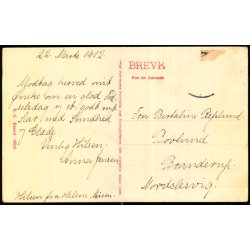 22 Marts 1912
Modtag herved mit
Ønske om en glad Fød-
selsdag og et godt nyt
Aar, med Sundhed
og Glæde.
Venlig Hilsen,
Anna Jensen
Hilsen fra Helene
BREVK
Kun for Adressen
Frn Bertaline Refslund
Bovlund
Branderup
Nordslesvig.